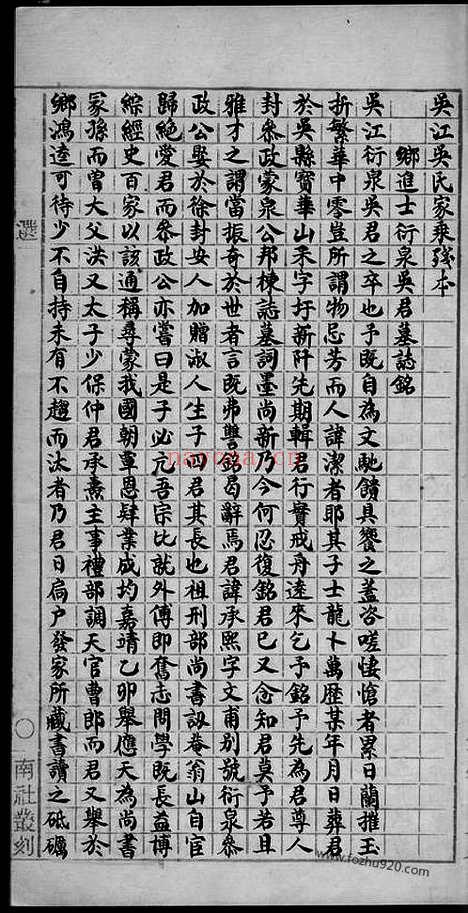 吳江吳氏家乘殘本
鄉進士衍泉吳君墓誌銘
吳江衍泉吳君之卒也予既自為文馳饋具饗之蓋咨嗟悽愴者累日蘭摧玉
折繁華中零豈所謂物忌芳而人諱潔者耶其子士龍卜萬歷某年月日葬君
於吳縣寶華山未字圩新阡先期輯君行實戒舟遠來乞予銘予先為君尊人
封參政蒙泉公邦棟誌墓詞墨尚新乃今何忍復銘君已又念知君莫予若且
雅才之謂當振奇於世者言既弗讐銘曷辭焉君諱承熙字文甫別號衍泉參
政公娶於徐封安人加贈淑人生子四君其長也祖刑部尚書訒菴翁山自官
歸絕愛君而參政公亦嘗曰是子必亢吾宗比就外傅即奮志問學既長益博
綜經史百家以該通稱尋蒙我國朝覃恩肄業成均嘉靖乙卯舉應天為尚書
冢孫而曾大父洪又太子少保仲君承燾主事禮部調天官曹郎而君又舉於
鄉鴻逵可待少不自持未有不趨而汰者乃君日扃户發家所藏書讀之砥礪
選
〇
南社叢刻
navona.cn
www.fozhu920.com